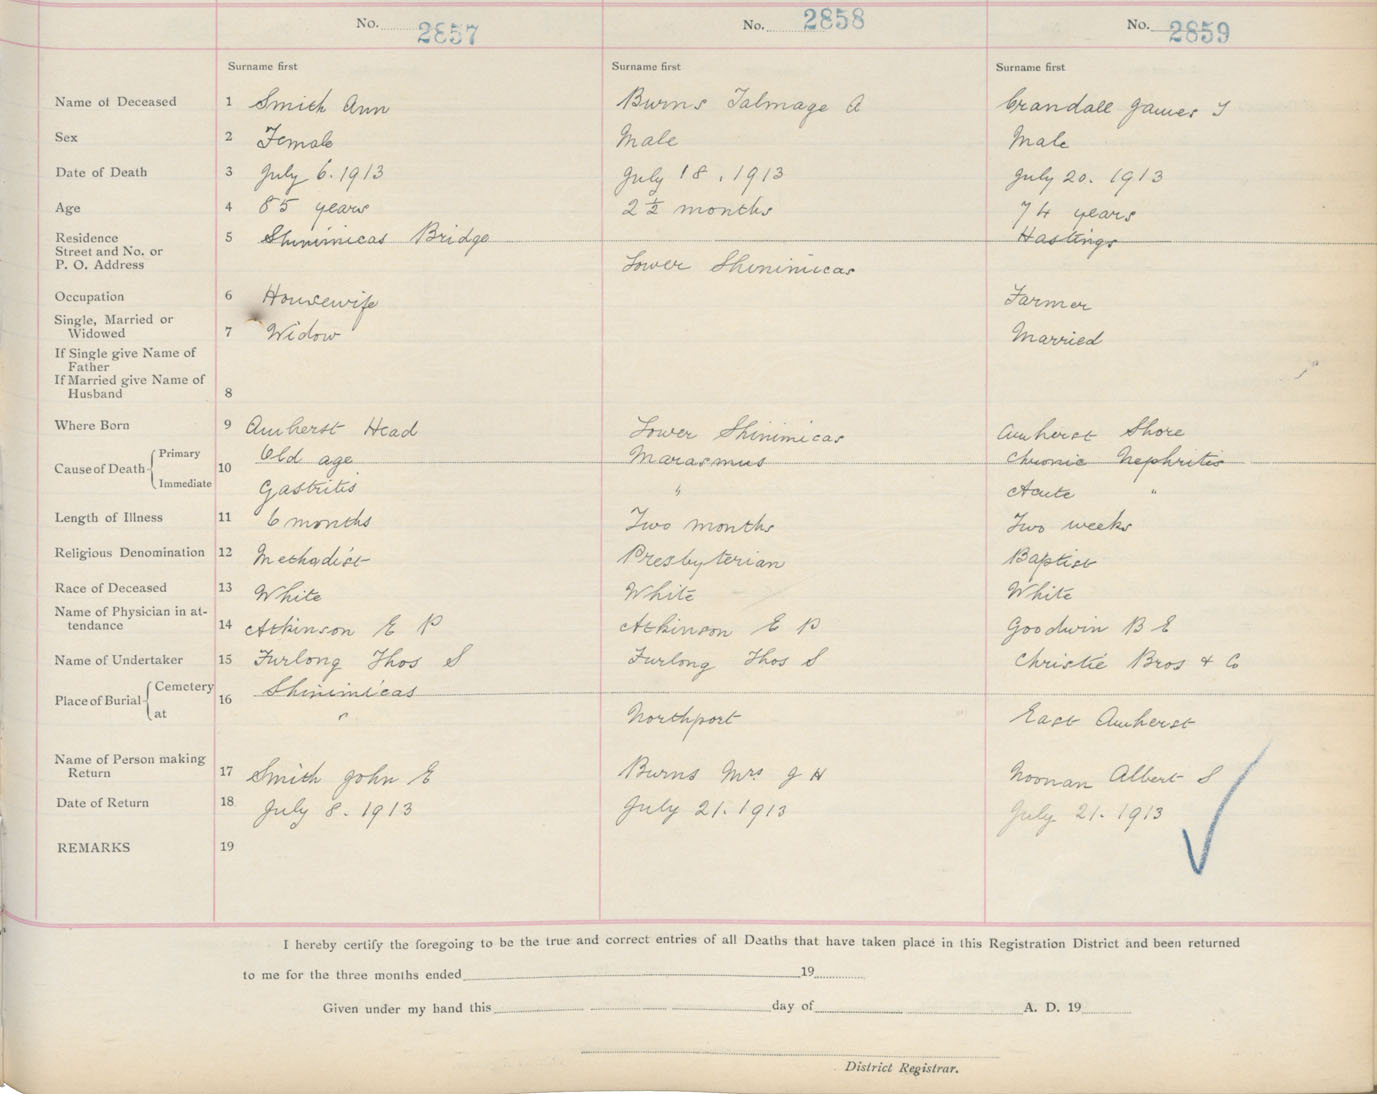 No. 2857 No. 2858 No. 2859
Surname first Surname first Surname first
Name of Deceased 1 Smith Ann Burns Talmage A Crandall James T
Sex 2 Female Male Male
Date of Death 3 July 6. 1913 July 18. 1913 July 20. 1913
Age 4 85 years 2½ months 74 years
Residence 5 Shinimicas Bridge Hastings
Street and No. or
P. O. Address Lower Shinimicas
Occupation 6 Housewife Farmer
Single, Married or
Widowed 7 Widow Married
If Single give Name of
Father
If Married give Name of
Husband 8
Where Born 9 Amherst Head Lower Shinimicas Amherst Shore
Cause of Death Primary 10 Old age Marasmus Chronic Nephritis
Immediate Gastritis " Acute "
Length of Illness 11 6 months Two months Two weeks
Religious Denomination 12 Methodist Presbyterian Baptist
Race of Deceased 13 White White White
Name of Physician in at-
tendance 14 Atkinson E P Atkinson E P Goodwin B E
Name of Undertaker 15 Furlong Thos S Furlong Thos S Christie Bros & Co
Place of Burial Cemetery 16 Shinimicas
at " Northport East Amherst
Name of Person making
Return 17 Smith John E Burns Mrs J H Noonan Albert S
Date of Return 18 July 8. 1913 July 21. 1913 July 21. 1913
REMARKS 19
I hereby certify the foregoing to be the true and correct entries of all Deaths that have taken place in this Registration District and been returned
to me for the three months ended 19
Given under my hand this day of A. D. 19
District Registrar.